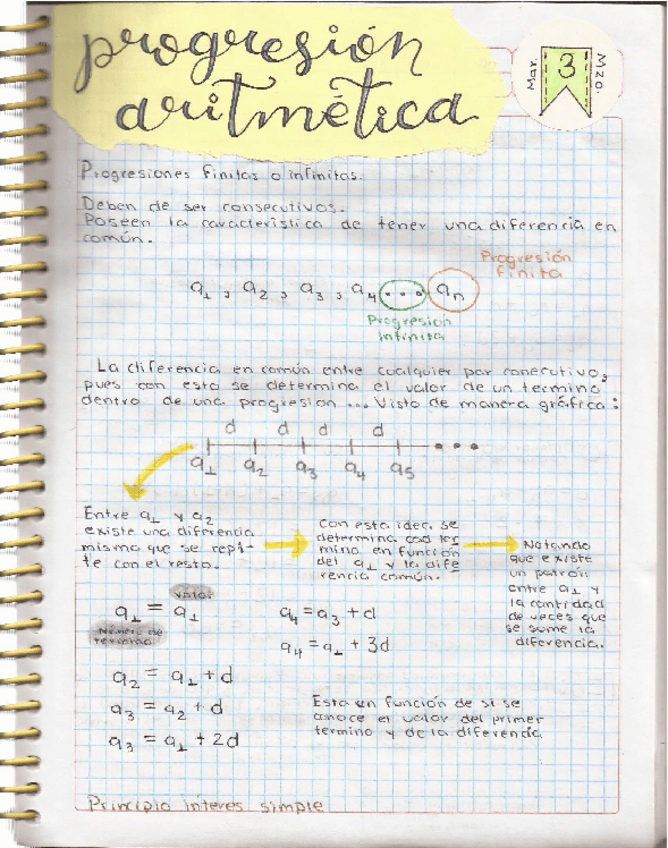 progresión
aritmética
Mar. 3 Mzo.
Progresiones finitas o infinitas.
Deben de ser consecutivos.
Poseen la caracteristica de tener una diferencia en
común.
Progresión
finita
a₁ , a₂ , a₃ , a₄ ... aₙ
Progresion
infinita
La diferencia en común entre cualquier par conecutivo,
pues con esto se determina el valor de un termino
dentro de una progresion ... Visto de manera gráfica:
d d d d
a₁ a₂ a₃ a₄ a₅ ...
Entre a₁ y a₂
existe una diferencia
misma que se repi-
te con el resto.
Con esta idea se
determina cad tér
mino en función
del a₁ y la dife
rencia común.
Notando
que existe
un patrón
entre a₁ y
la cantidad
de veces que
se sume la
diferencia.
Valor
a₁ = a₁
Número de
termino
a₂ = a₁ + d
a₃ = a₂ + d
a₃ = a₁ + 2d
a₄ = a₃ + d
a₄ = a₁ + 3d
Esta en función de si se
conoce el valor del primer
termino y de la diferencia
Principio interes simple